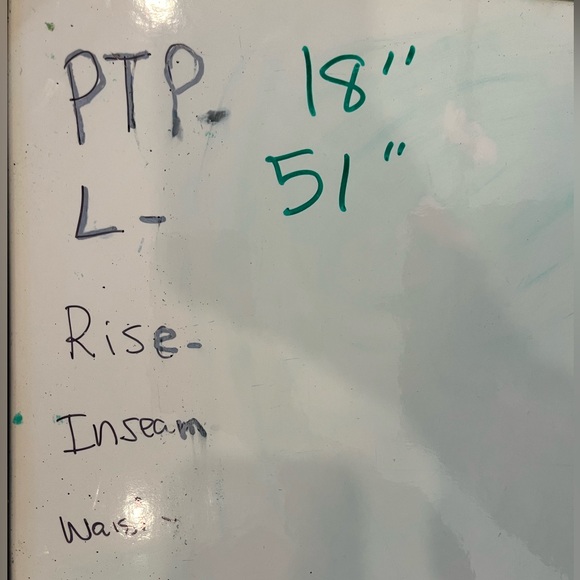 PTP- 18"
L - 51"
Rise-
Inseam